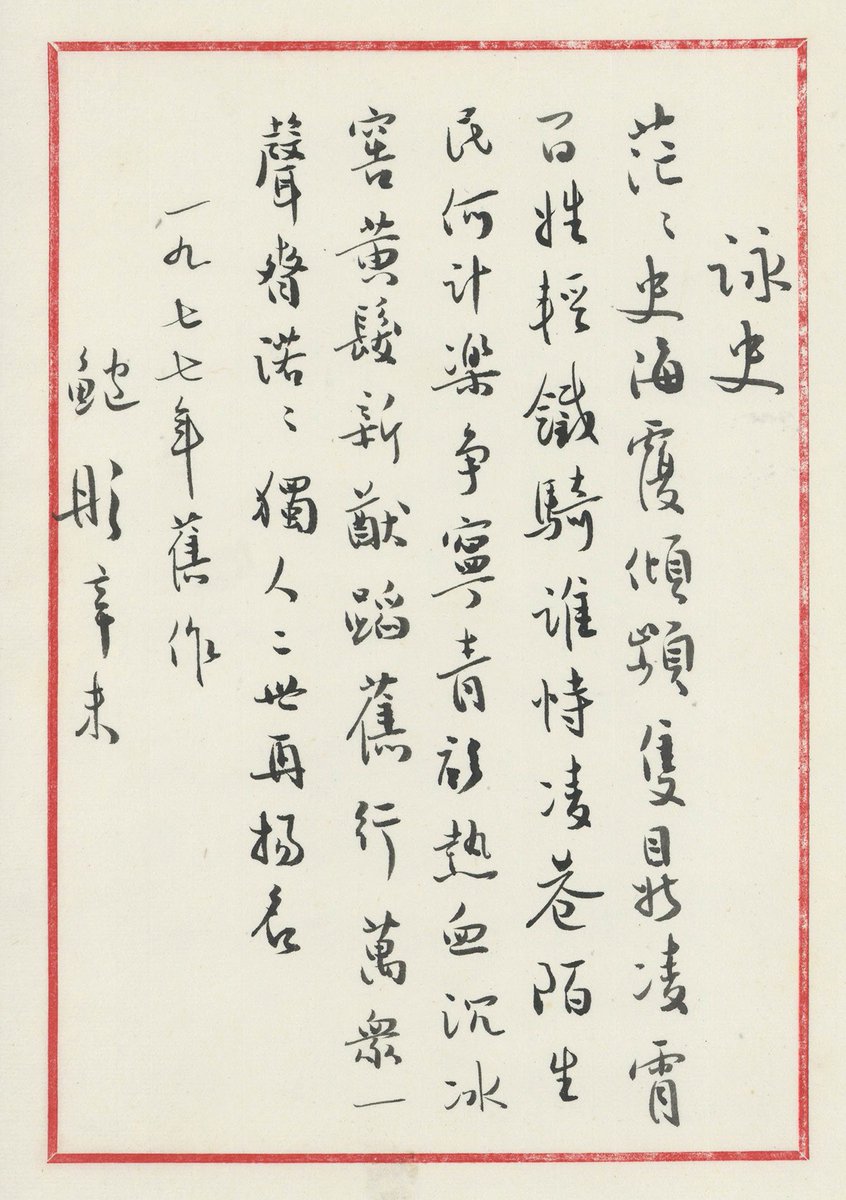 詠史
茫〻史海覆傾頻隻鼎凌霄
百姓輕鐵騎誰恃凌巷陌生
民何计樂争寧青衫熱血沉冰
窖黄髮新猷蹈舊行萬衆一
聲齊諾〻獨人二世再揚名
一九七七年舊作
鮑彤辛未